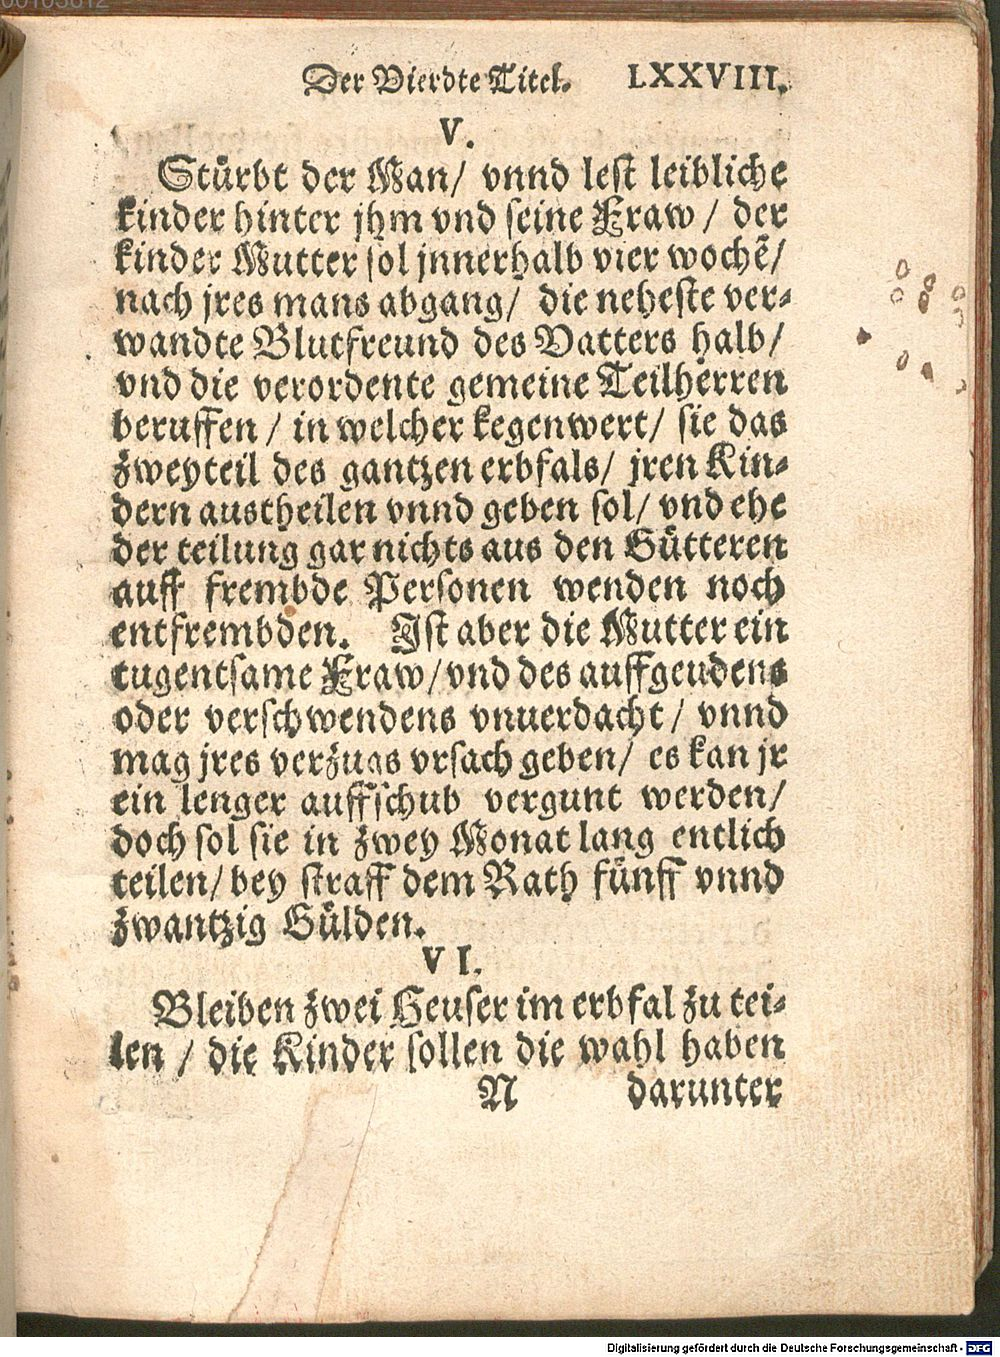 Der Vierdte Titel. LXXVIII.
V.
Stürbt der Man/ vnnd lest leibliche
kinder hinter jhm vnd seine Fraw / der
kinder Mutter sol jnnerhalb vier wochẽ/
nach jres mans abgang/ die neheste ver-
wandte Blutfreund des Vatters halb/
vnd die verordente gemeine Teilherren
beruffen / in welcher kegenwert/ sie das
zweyteil des gantzen erbfals/ jren Kin-
dern austheilen vnnd geben sol/ vnd ehe
der teilung gar nichts aus den Gütteren
auff frembde Personen wenden noch
entfrembden. Ist aber die Mutter ein
tugentsame Fraw/ vnd des auffgeudens
oder verschwendens vnuerdacht/ vnnd
mag jres verzugs vrsach geben/ es kan jr
ein lenger auffschub vergunt werden/
doch sol sie in zwey Monat lang entlich
teilen/ bey straff dem Rath fünff vnnd
zwantzig Gülden.
VI.
Bleiben zwei Heuser im erbfal zu tei-
len / die Kinder sollen die wahl haben
N darunter
Digitalisierung gefördert durch die Deutsche Forschungsgemeinschaft - DFG